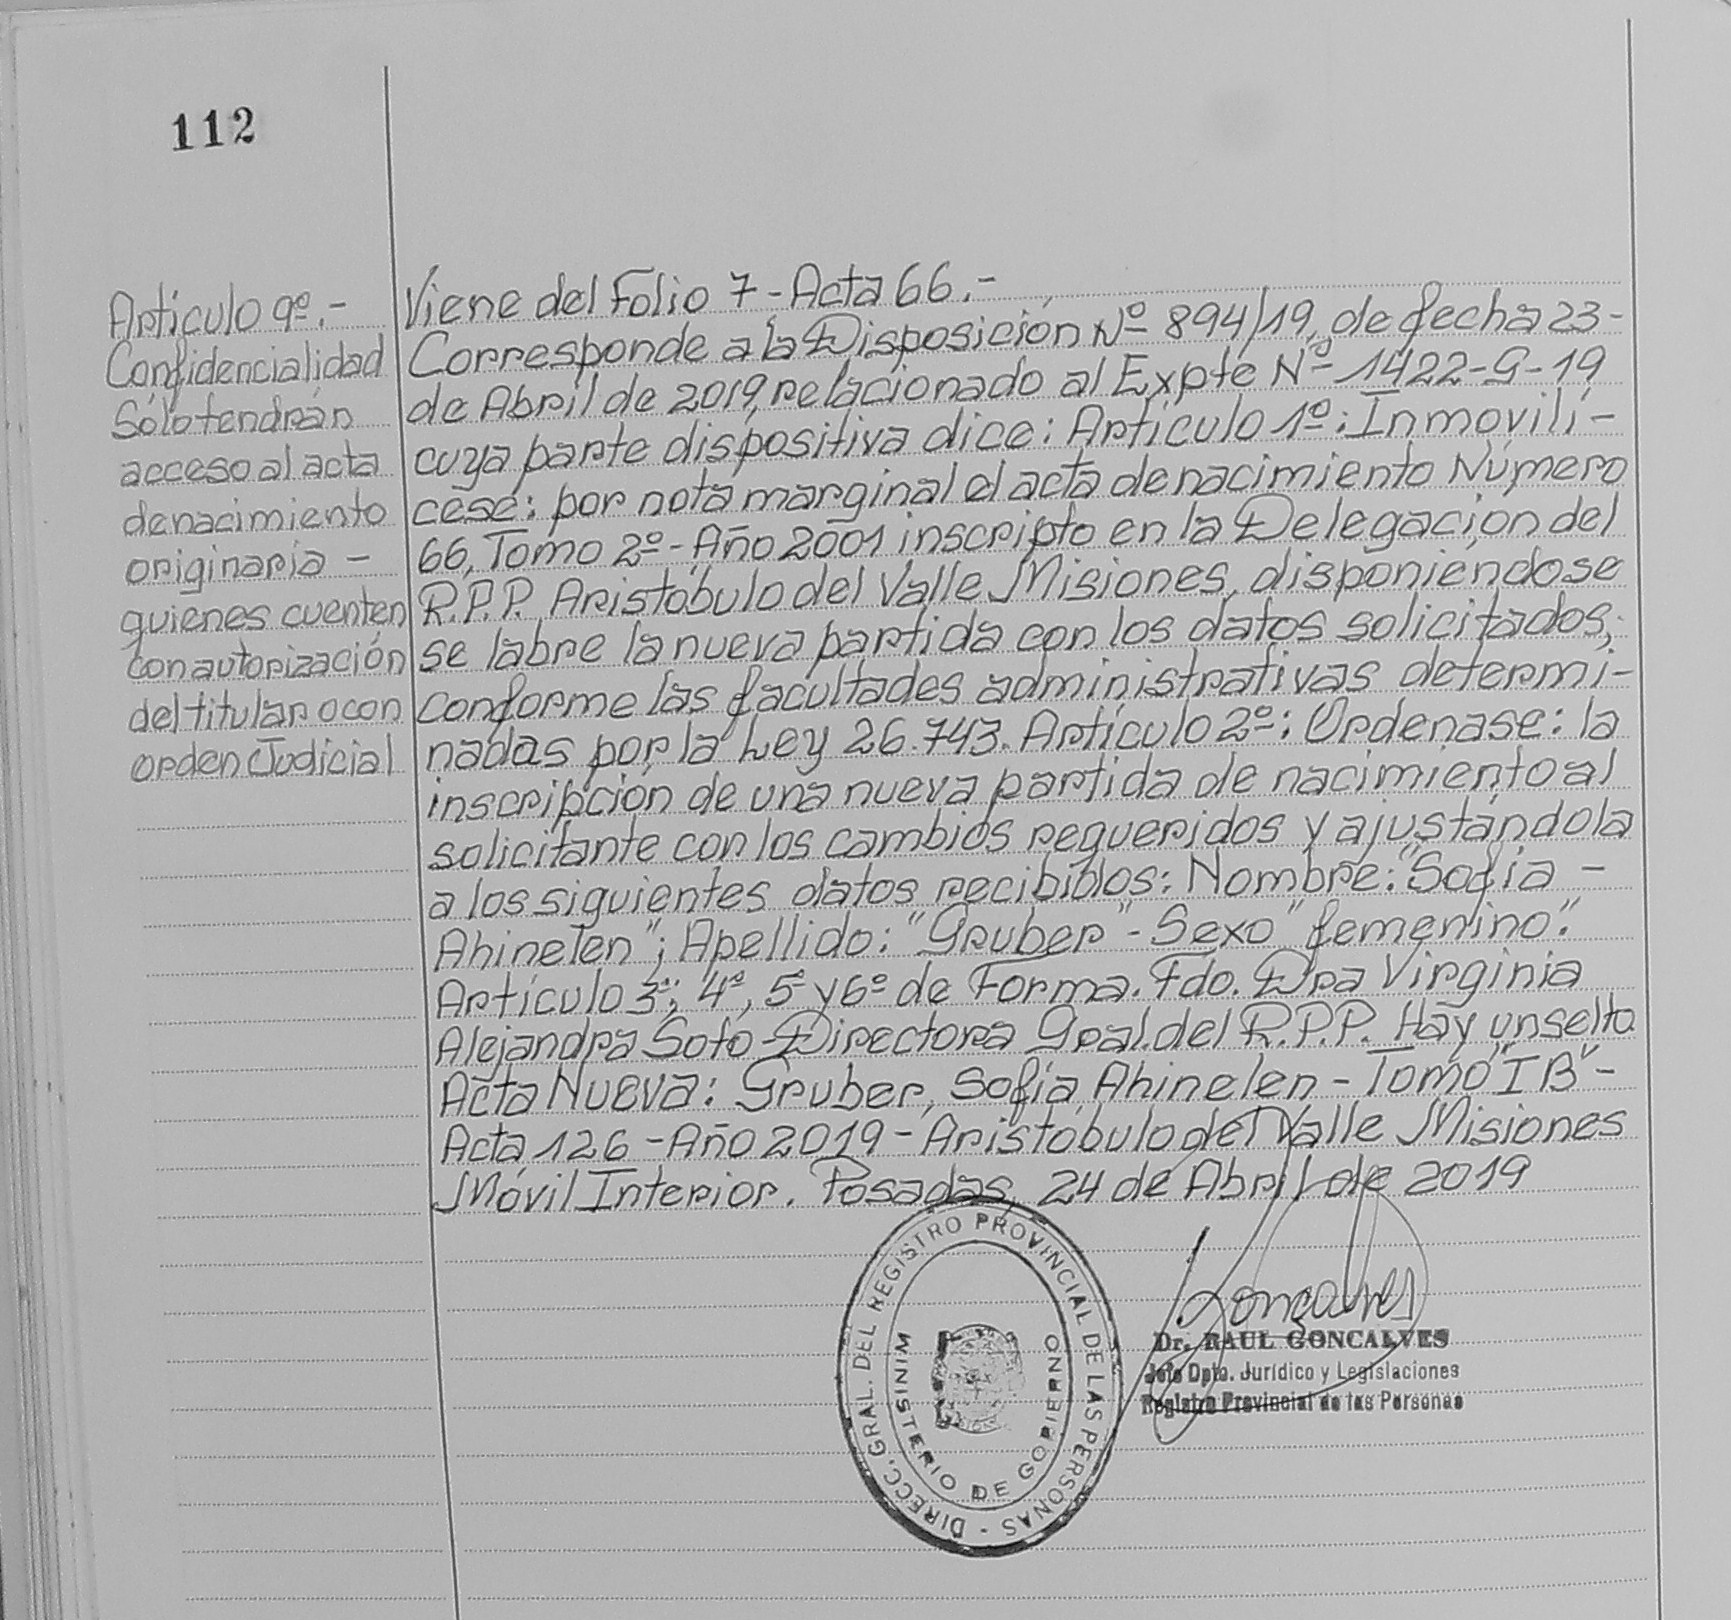 112
Artículo 9º.-
Confidencialidad
Sólo tendrán
acceso al acta
de nacimiento
originaria -
quienes cuenten
con autorización
del titular o con
orden Judicial
Viene del Folio 7 - Acta 66.-
Corresponde a la Disposición Nº 894/19, de fecha 23-
de Abril de 2019, relacionado al Expte Nº 1422-G-19
cuya parte dispositiva dice: Artículo 1º: Inmovili-
cese: por nota marginal el acta de nacimiento Número
66, Tomo 2º - Año 2001 inscripto en la Delegación del
R.P.P. Aristóbulo del Valle Misiones, disponiéndose
se labre la nueva partida con los datos solicitados,
conforme las facultades administrativas determi-
nadas por la Ley 26.743. Artículo 2º: Ordenase: la
inscripción de una nueva partida de nacimiento al
solicitante con los cambios requeridos y ajustándola
a los siguientes datos recibidos: Nombre: "Sofía -
Ahinelen"; Apellido: "Gruber" - Sexo "femenino".
Artículo 3º, 4º, 5º y 6º de Forma. Fdo. Dra Virginia
Alejandra Soto - Directora Gral. del R.P.P. Hay un sello
Acta Nueva: Gruber, Sofía Ahinelen - Tomo "IB" -
Acta 126 - Año 2019 - Aristóbulo del Valle Misiones
Móvil Interior. Posadas, 24 de Abril de 2019
DIRECC. GRAL. DEL REGISTRO PROVINCIAL DE LAS PERSONAS -
MINISTERIO DE GOBIERNO
Goncalves
Dr. RAUL GONCALVES
Jefe Dpto. Jurídico y Legislaciones
Registro Provincial de las Personas